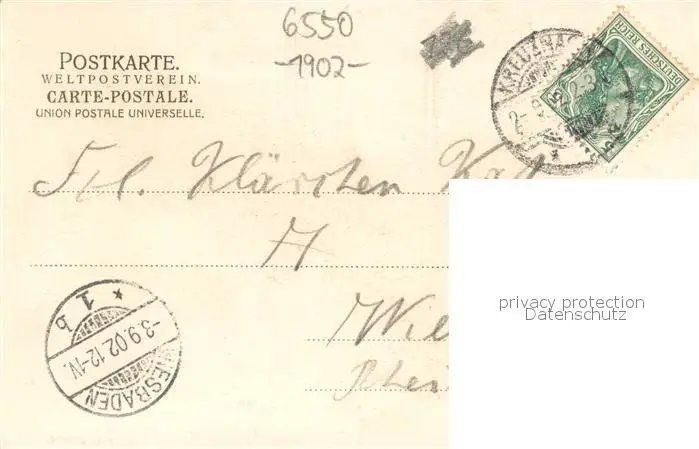 6550
-1902-
POSTKARTE.
WELTPOSTVEREIN.
CARTE-POSTALE.
UNION POSTALE UNIVERSELLE.
KREUZNACH
DEUTSCHES REICH
Frl. Klärchen
H
Wie
Rhei
1 b
-3.9.02.12-1V.
WIESBADEN
privacy protection
Datenschutz